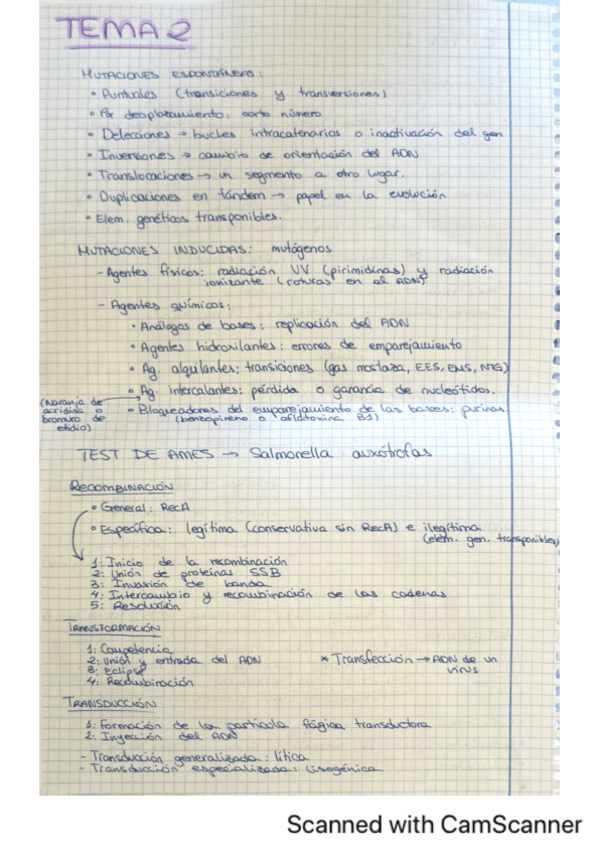 TEMA 2
MUTACIONES ESPONTÁNEAS:
• Puntuales (transiciones y transversiones)
• Por desplazamiento: corto número
• Delecciones → bucles intracatenarios o inactivación del gen
• Inversiones → cambio de orientación del ADN
• Translocaciones → un segmento a otro lugar.
• Duplicaciones en tándem → papel en la evolución
• Elem. genéticos transponibles.
MUTACIONES INDUCIDAS: mutágenos
- Agentes físicos: radiación UV (pirimidinas) y radiación
ionizante (roturas en el ADN)
- Agentes químicos:
• Análogos de bases: replicación del ADN
• Agentes hidroxilantes: errores de emparejamiento
• Ag. alquilantes: transiciones (gas mostaza, EES, EMS, NTG)
• Ag. intercalantes: pérdida o ganancia de nucleótidos.
(Naranja de
acridina o
bromuro de
etidio)
• Bloqueadores del emparejamiento de las bases: purinas
(benzopireno o aflatoxina B1)
TEST DE AMES → Salmonella auxótrofas
RECOMBINACIÓN
• General: RecA
• Específica: legítima (conservativa sin RecA) e ilegítima
(elem. gen. transponibles)
1: Inicio de la recombinación
2: Unión de proteínas SSB
3: Invasión de banda
4: Intercambio y recombinación de las cadenas
5: Resolución
TRANSFORMACIÓN
1: Competencia
2: Unión y entrada del ADN
3: Eclipse
4: Recombinación
* Transfección → ADN de un
virus
TRANSDUCCIÓN
1: Formación de la partícula fágica transductora
2: Inyección del ADN
- Transducción generalizada: lítica
- Transducción especializada: lisogénica
Scanned with CamScanner